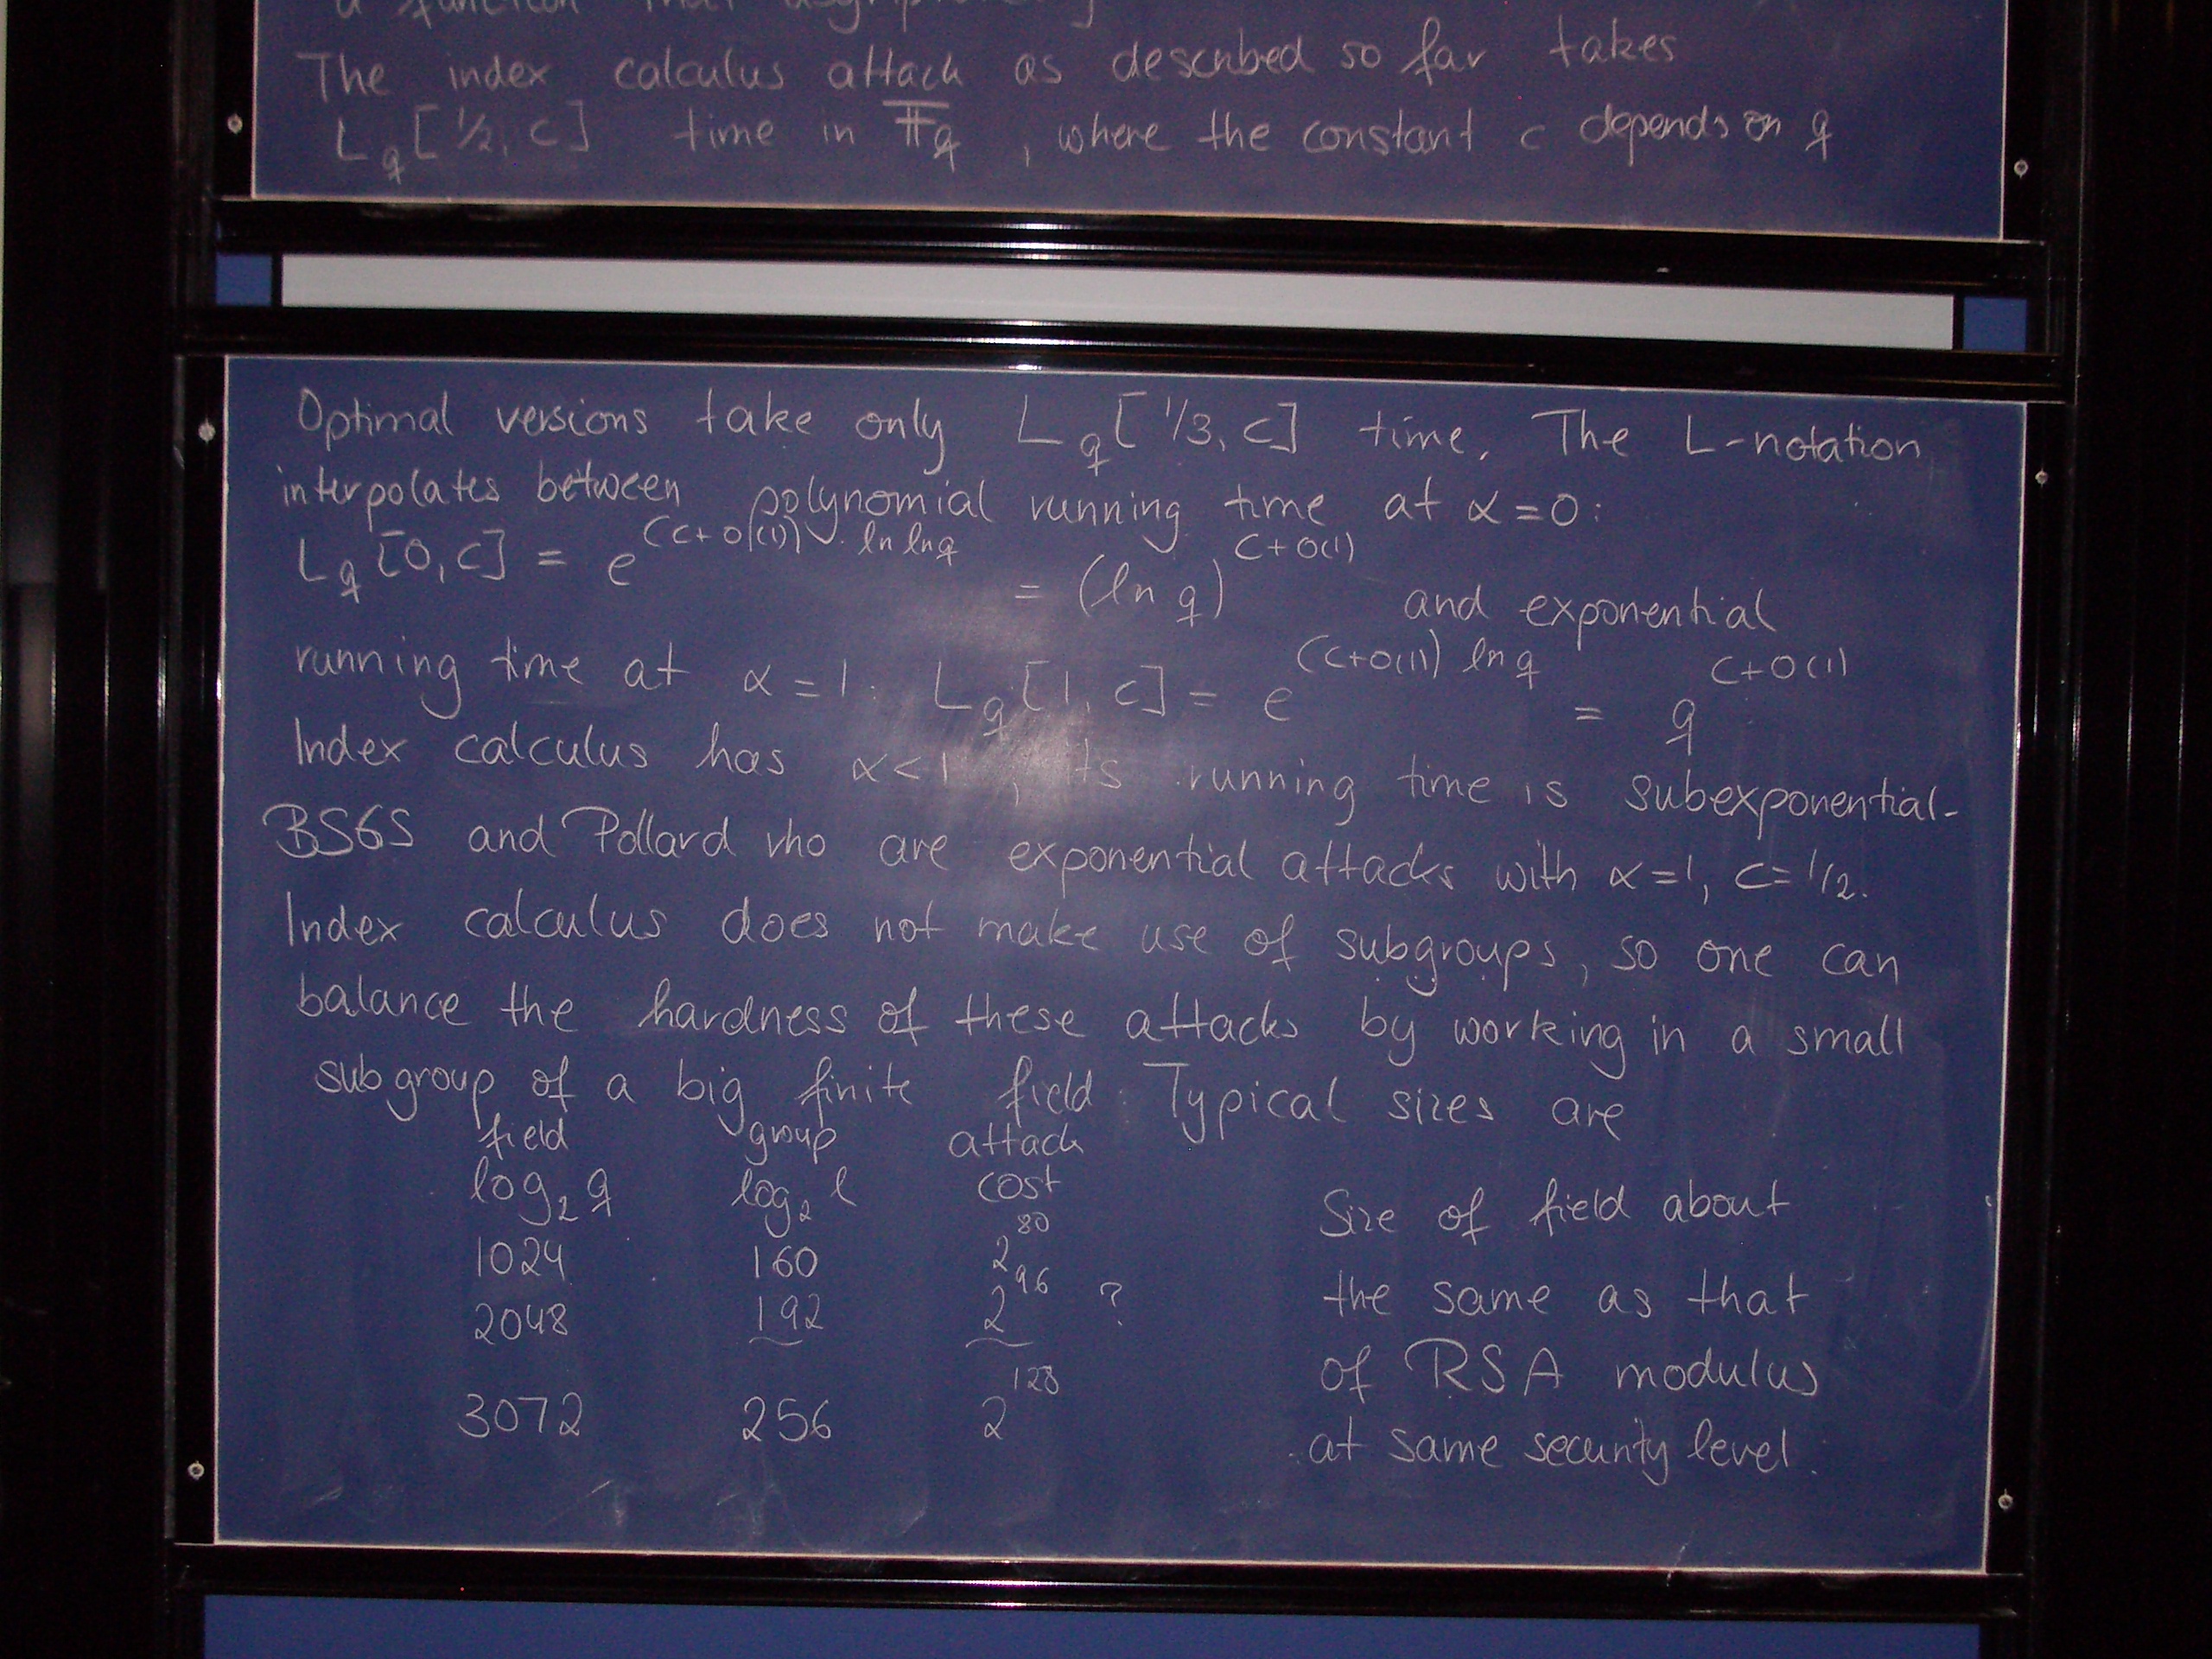 a function that
The index calculus attack as described so far takes
L_q[1/2, c] time in 𝔽_q, where the constant c depends on q
Optimal versions take only L_q[1/3, c] time. The L-notation
interpolates between polynomial running time at α=0:
L_q[0, c] = e^{(c+o(1)) ln ln q} = (ln q)^{c+o(1)} and exponential
running time at α=1: L_q[1, c] = e^{(c+o(1)) ln q} = q^{c+o(1)}
Index calculus has α<1, its running time is subexponential.
BSGS and Pollard rho are exponential attacks with α=1, c=1/2.
Index calculus does not make use of subgroups, so one can
balance the hardness of these attacks by working in a small
subgroup of a big finite field. Typical sizes are
field group attack
log_2 q log_2 l cost
1024 160 2^80
2048 192 2^96 ?
3072 256 2^128
Size of field about
the same as that
of RSA modulus
at same security level.